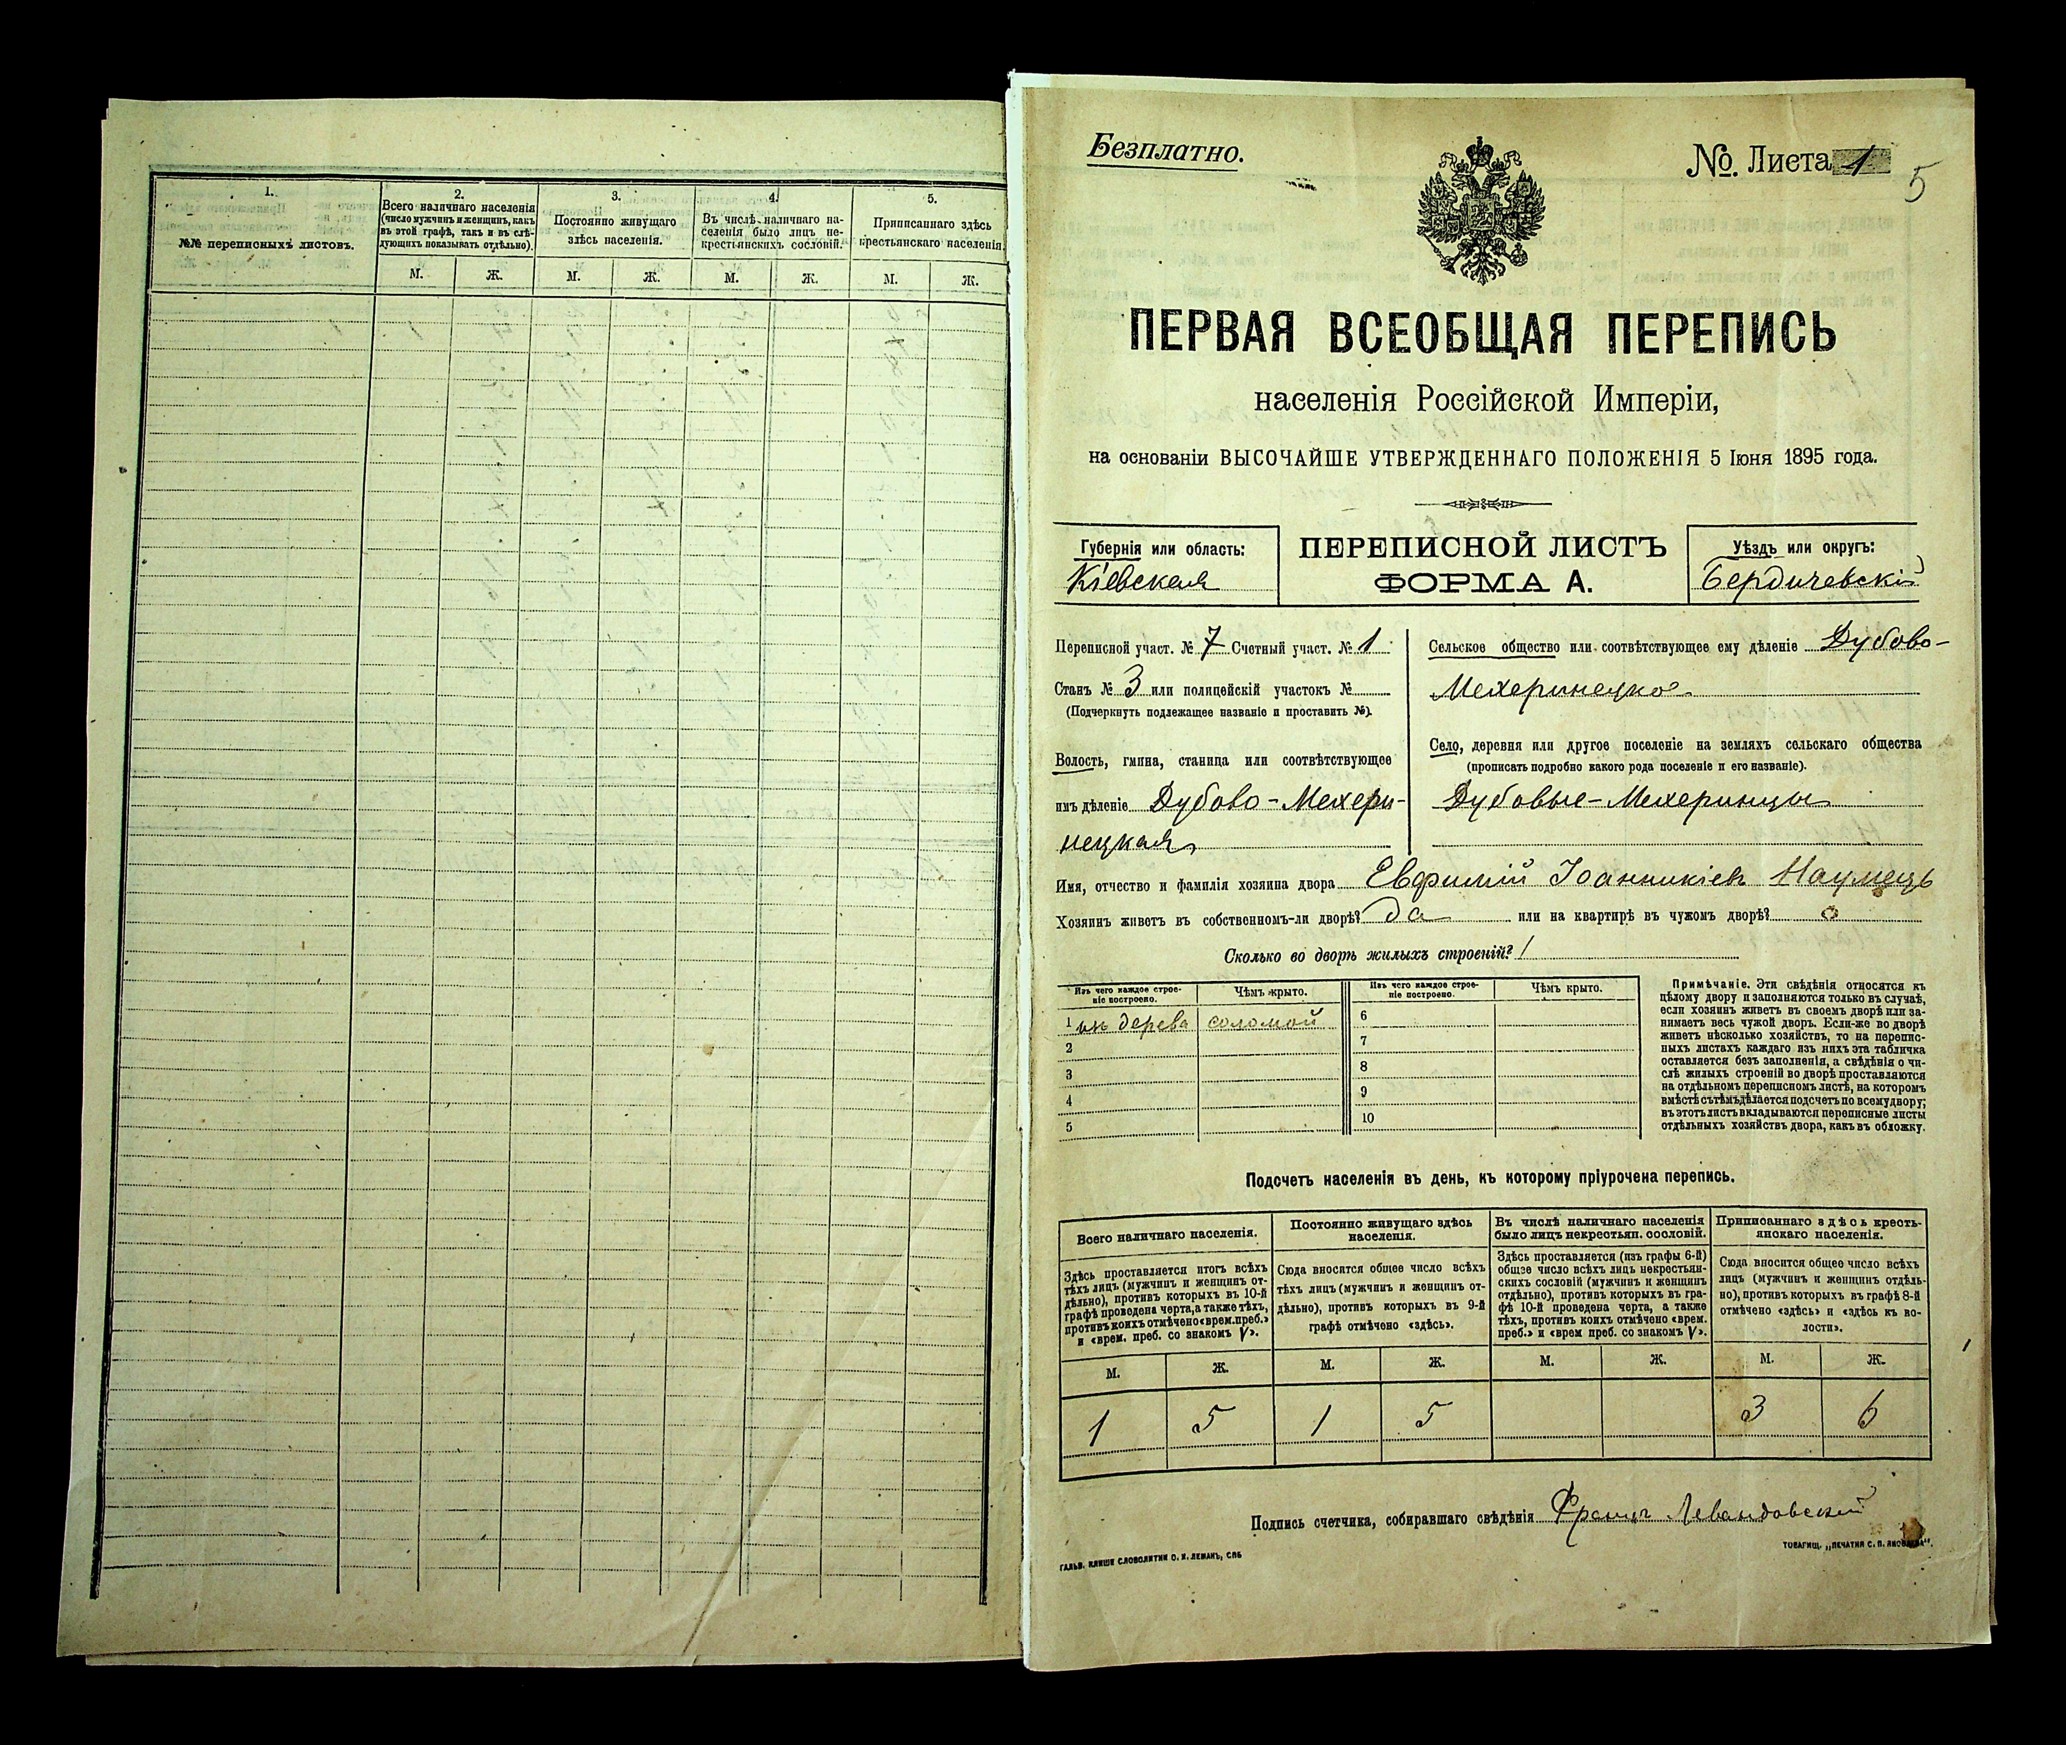 1.
№№ переписныхъ листовъ.
2.
Всего наличнаго населенія
(число мужчинъ и женщинъ, какъ
въ этой графѣ, такъ и въ слѣ-
дующихъ показывать отдѣльно).
3.
Постоянно живущаго
здѣсь населенія.
4.
Въ числѣ наличнаго на-
селенія было лицъ не-
крестьянскихъ сословій.
5.
Приписаннаго здѣсь
крестьянскаго населенія.
М. Ж. М. Ж. М. Ж. М. Ж.
Безплатно.
№. Листа 1
5
ПЕРВАЯ ВСЕОБЩАЯ ПЕРЕПИСЬ
населенія Россійской Имперіи,
на основаніи ВЫСОЧАЙШЕ УТВЕРЖДЕННАГО ПОЛОЖЕНІЯ 5 Іюня 1895 года.
Губернія или область:
Кіевская
ПЕРЕПИСНОЙ ЛИСТЪ
ФОРМА А.
Уѣздъ или округъ:
Бердичевскій
Переписной участ. № 7 Счетный участ. № 1
Станъ № 3 или полицейскій участокъ №
(Подчеркнуть подлежащее названіе и проставить №).
Волость, гмина, станица или соотвѣтствующее
имъ дѣленіе Дубово-Мехери-
нецкая
Сельское общество или соотвѣтствующее ему дѣленіе Дубово-
Мехеринецкое
Село, деревня или другое поселеніе на земляхъ сельскаго общества
(прописать подробно какого рода поселеніе и его названіе).
Дубовые-Мехеринцы
Имя, отчество и фамилія хозяина двора Евфимій Іоанникіевъ Наумецъ
Хозяинъ живетъ въ собственномъ-ли дворѣ? да или на квартирѣ въ чужомъ дворѣ? 0
Сколько во дворѣ жилыхъ строеній? 1
Изъ чего каждое строе-
ніе построено.
Чѣмъ крыто.
Изъ чего каждое строе-
ніе построено.
Чѣмъ крыто.
1 изъ дерева соломой
2
3
4
5
6
7
8
9
10
Примѣчаніе. Эти свѣдѣнія относятся къ
цѣлому двору и заполняются только въ случаѣ,
если хозяинъ живетъ въ своемъ дворѣ или за-
нимаетъ весь чужой дворъ. Если-же во дворѣ
живетъ нѣсколько хозяйствъ, то на перепис-
ныхъ листахъ каждаго изъ нихъ эта табличка
оставляется безъ заполненія, а свѣдѣнія о чи-
слѣ жилыхъ строеній во дворѣ проставляются
на отдѣльномъ переписномъ листѣ, на которомъ
вмѣстѣ съ тѣмъ дѣлается подсчетъ по всему двору;
въ этотъ листъ вкладываются переписные листы
отдѣльныхъ хозяйствъ двора, какъ въ обложку.
Подсчетъ населенія въ день, къ которому пріурочена перепись.
Всего наличнаго населенія.
Здѣсь проставляется итогъ всѣхъ
тѣхъ лицъ (мужчинъ и женщинъ от-
дѣльно), противъ которыхъ въ 10-й
графѣ проведена черта, а также тѣхъ,
противъ коихъ отмѣчено «врем. преб.»
и «врем. преб. со знакомъ V».
Постоянно живущаго здѣсь
населенія.
Сюда вносится общее число всѣхъ
тѣхъ лицъ (мужчинъ и женщинъ от-
дѣльно), противъ которыхъ въ 9-й
графѣ отмѣчено «здѣсь».
Въ числѣ наличнаго населенія
было лицъ некрестьян. сословій.
Здѣсь проставляется (изъ графы 6-й)
общее число всѣхъ лицъ некрестьян-
скихъ сословій (мужчинъ и женщинъ
отдѣльно), противъ которыхъ въ гра-
фѣ 10-й проведена черта, а также
тѣхъ, противъ коихъ отмѣчено «врем.
преб.» и «врем преб. со знакомъ V».
Приписаннаго здѣсь кресть-
янскаго населенія.
Сюда вносится общее число всѣхъ
лицъ (мужчинъ и женщинъ отдѣль-
но), противъ которыхъ въ графѣ 8-й
отмѣчено «здѣсь» и «здѣсь къ во-
лости».
М. Ж. М. Ж. М. Ж. М. Ж.
1 5 1 5 3 6
Подпись счетчика, собиравшаго свѣдѣнія Францъ Левандовскій
ГАЛЬВ. КЛИШЕ СЛОВОЛИТНИ О. И. ЛЕМАНЪ, СПБ
ТОВАРИЩ. „ПЕЧАТНЯ С. П. ЯКОВЛЕВА“.